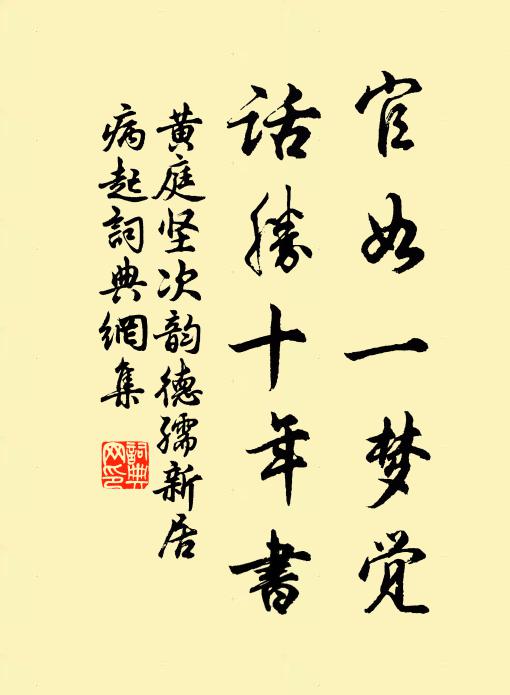 官如一梦觉
话勝十年書
黄庭坚次韵德孺新居
病起詞典網集
詞典
网印